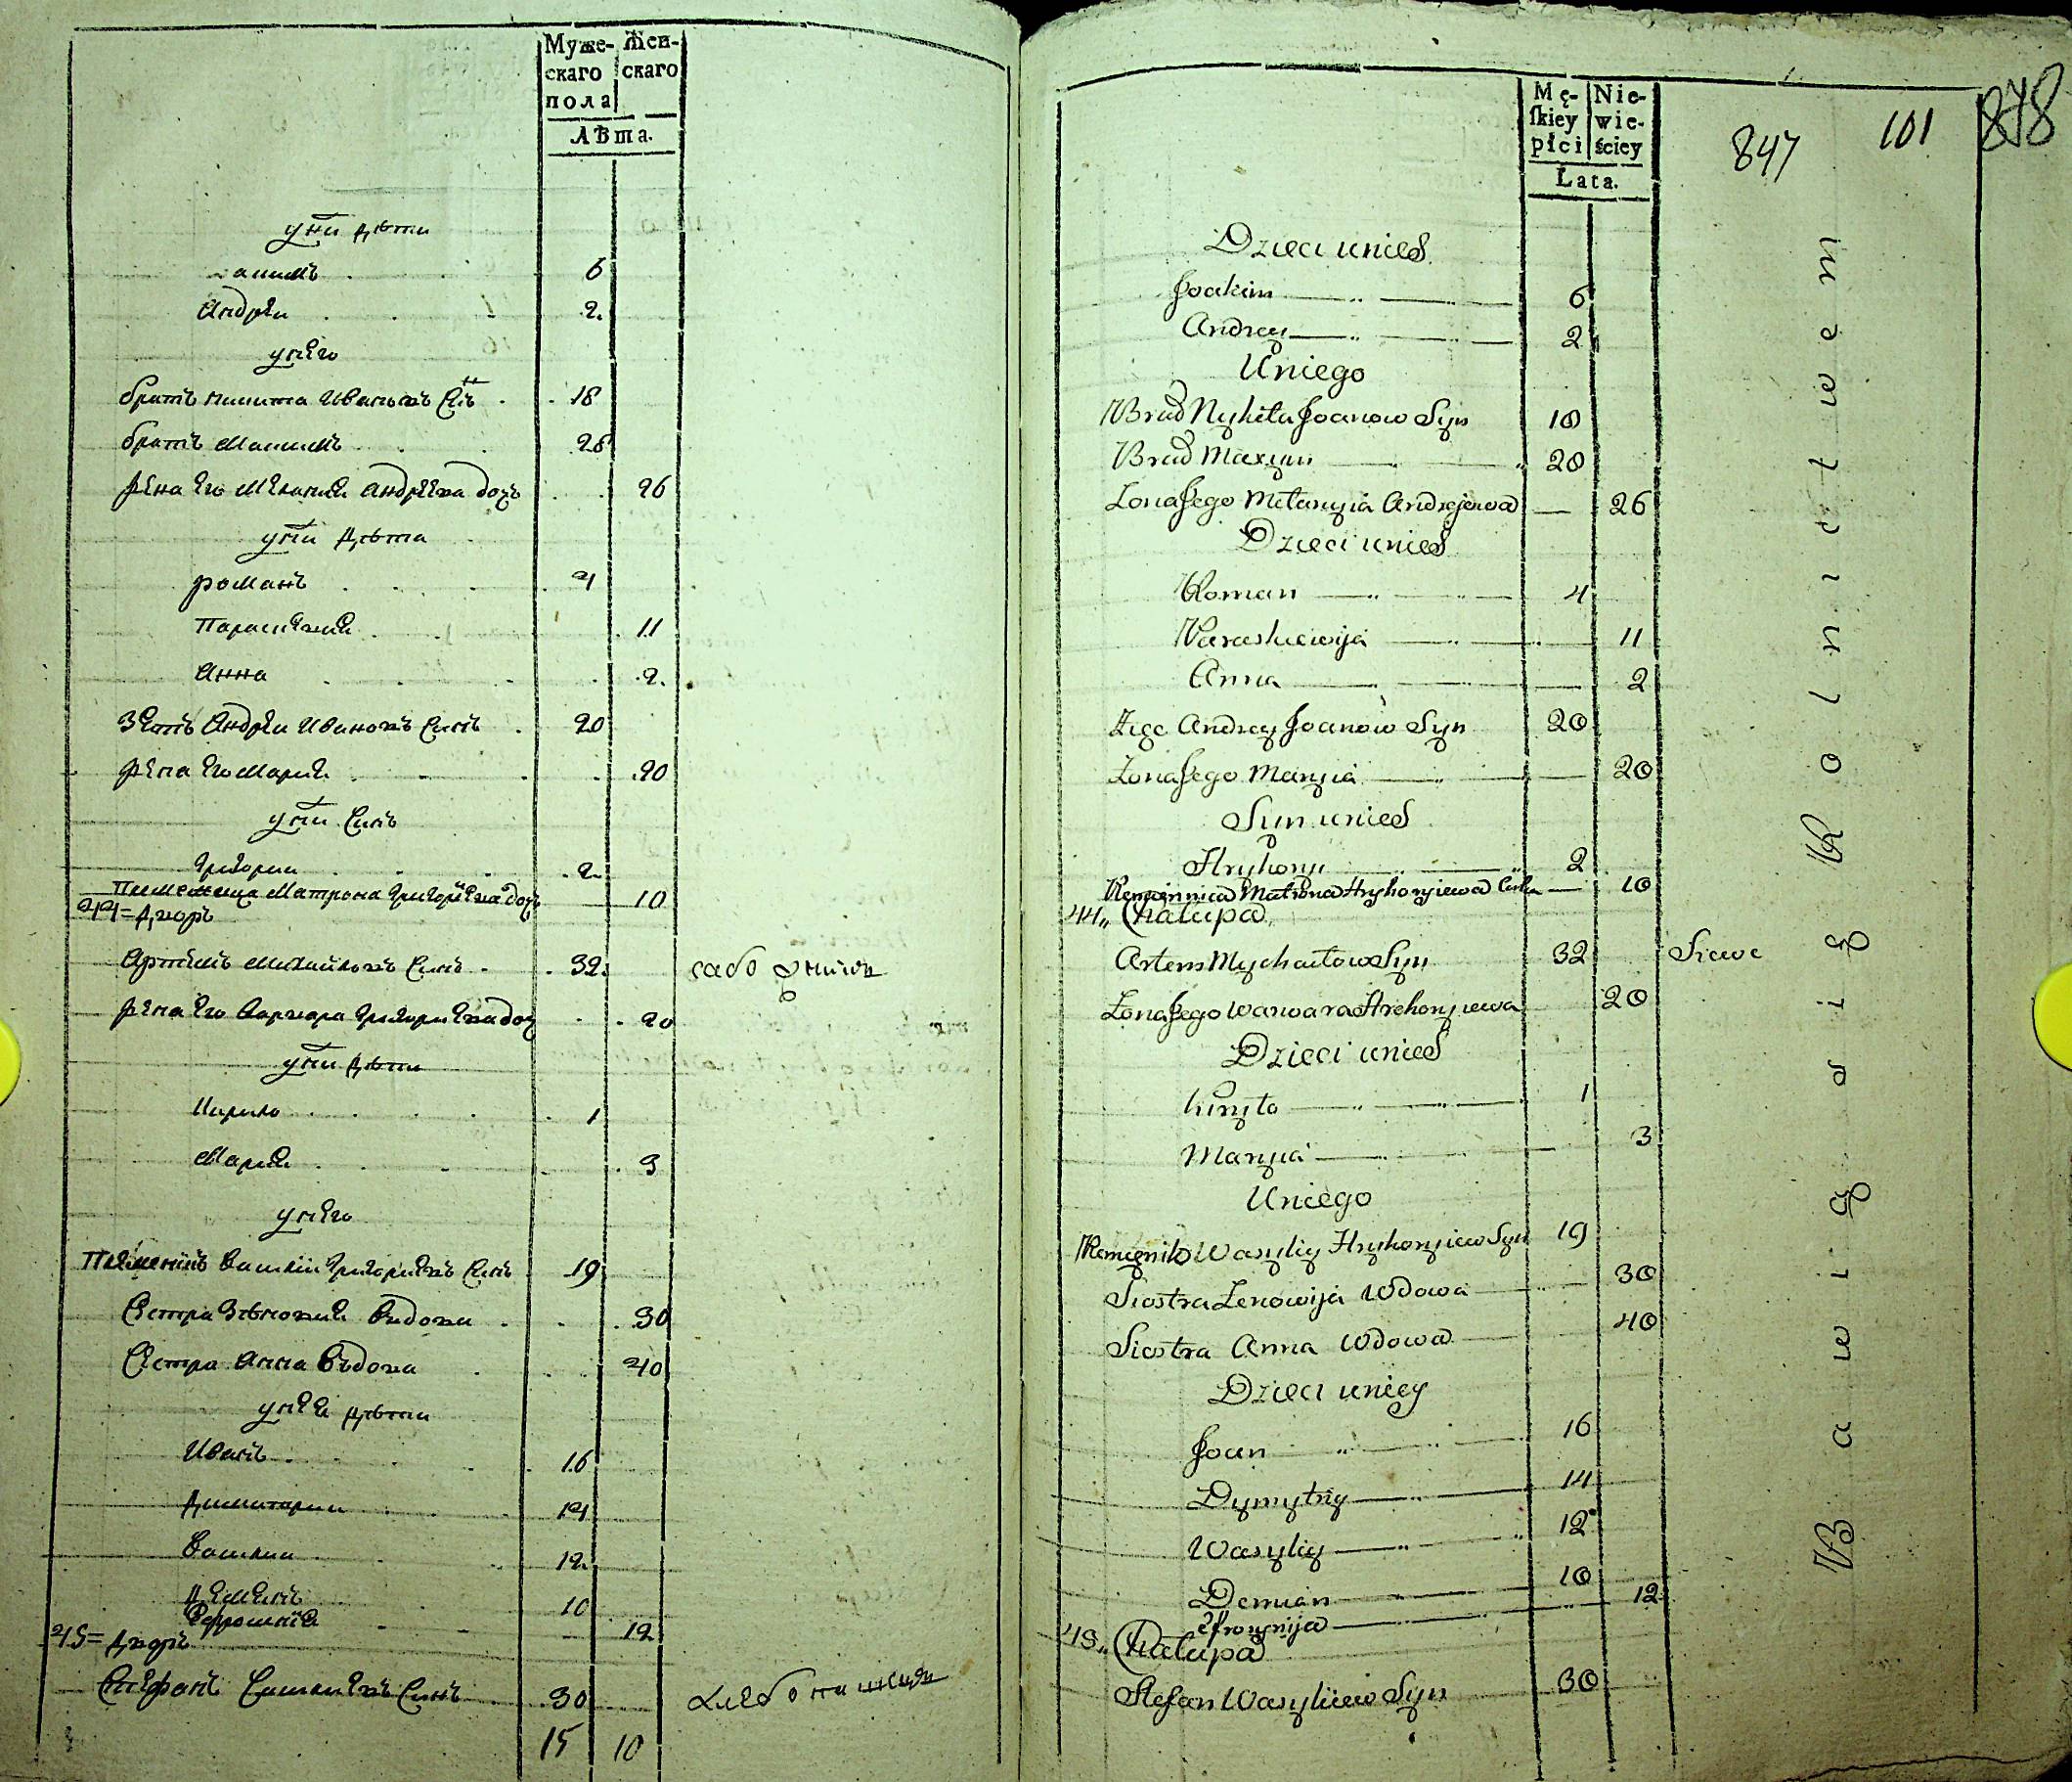 Муже-
скаго
пола
Жен-
скаго
Лѣта.
у нй дѣти
акимъ 6
Андрѣи 2
у него
братъ никита Ивановъ Снъ 18
братъ Макимъ 28
жена его Мелания Андреева дочь 26
у нй дѣти
романъ 4
Параскевия 11
Анна 2
Зеть Андреи Ивановъ Синъ 20
жена его Мария 20
у нй Синъ
Григории 2
Племеница Матрона Григориева дочь 10
44= Дворъ
Артемъ Михайловъ Синъ 32
жена его Варвара Григориева доч 20
у нй дѣти
Кирило 1
Мария 3
у него
Племеникъ Василии Григориевъ Синъ 19
Сестра Зѣновия Вдова 30
Сестра Анна Вдова 40
у неи дѣти
Иванъ 16
Димитрии 14
Василии 12
Демѣнъ 10
Ефросиния 12
45= Дворъ
Стефанъ Василиевъ Синъ 30
15 10
Mę-
skiey
płci
Nie-
wie-
ściey
Lata.
847 101 878
Dzieci unies
Joakim 6
Andrey 2
Uniego
Brad Nykita Joanow Syn 18
Brad Maxym 28
Zona Jego Melanyia Andrejewa 26
Dzieci unies
Roman 4
Paraskiewija 11
Anna 2
Zięc Andrey Joanow Syn 20
Zona Jego Maryia 20
Syn unies
Hryhory 2
Plemiennica Matrona Hryhoryiewa Curka 10
44„ Chałupa
Artem Mychaiłow Syn 32
Zona Jego Warwara Hrehoryiewa 20
Dzieci unies
Kiryło 1
Maryia 3
Uniego
Plemięnik Wasyliy Hryhoryiew Syn 19
Siostra Zenowija Wdowa 30
Siostra Anna Wdowa 40
Dzieci uniey
Joan 16
Dymytriy 14
Wasyliy 12
Demian 10
Efrosynija 12
45„ Chałupa
Stefan Wasyliiew Syn 30
Bawią się Rolnictwem